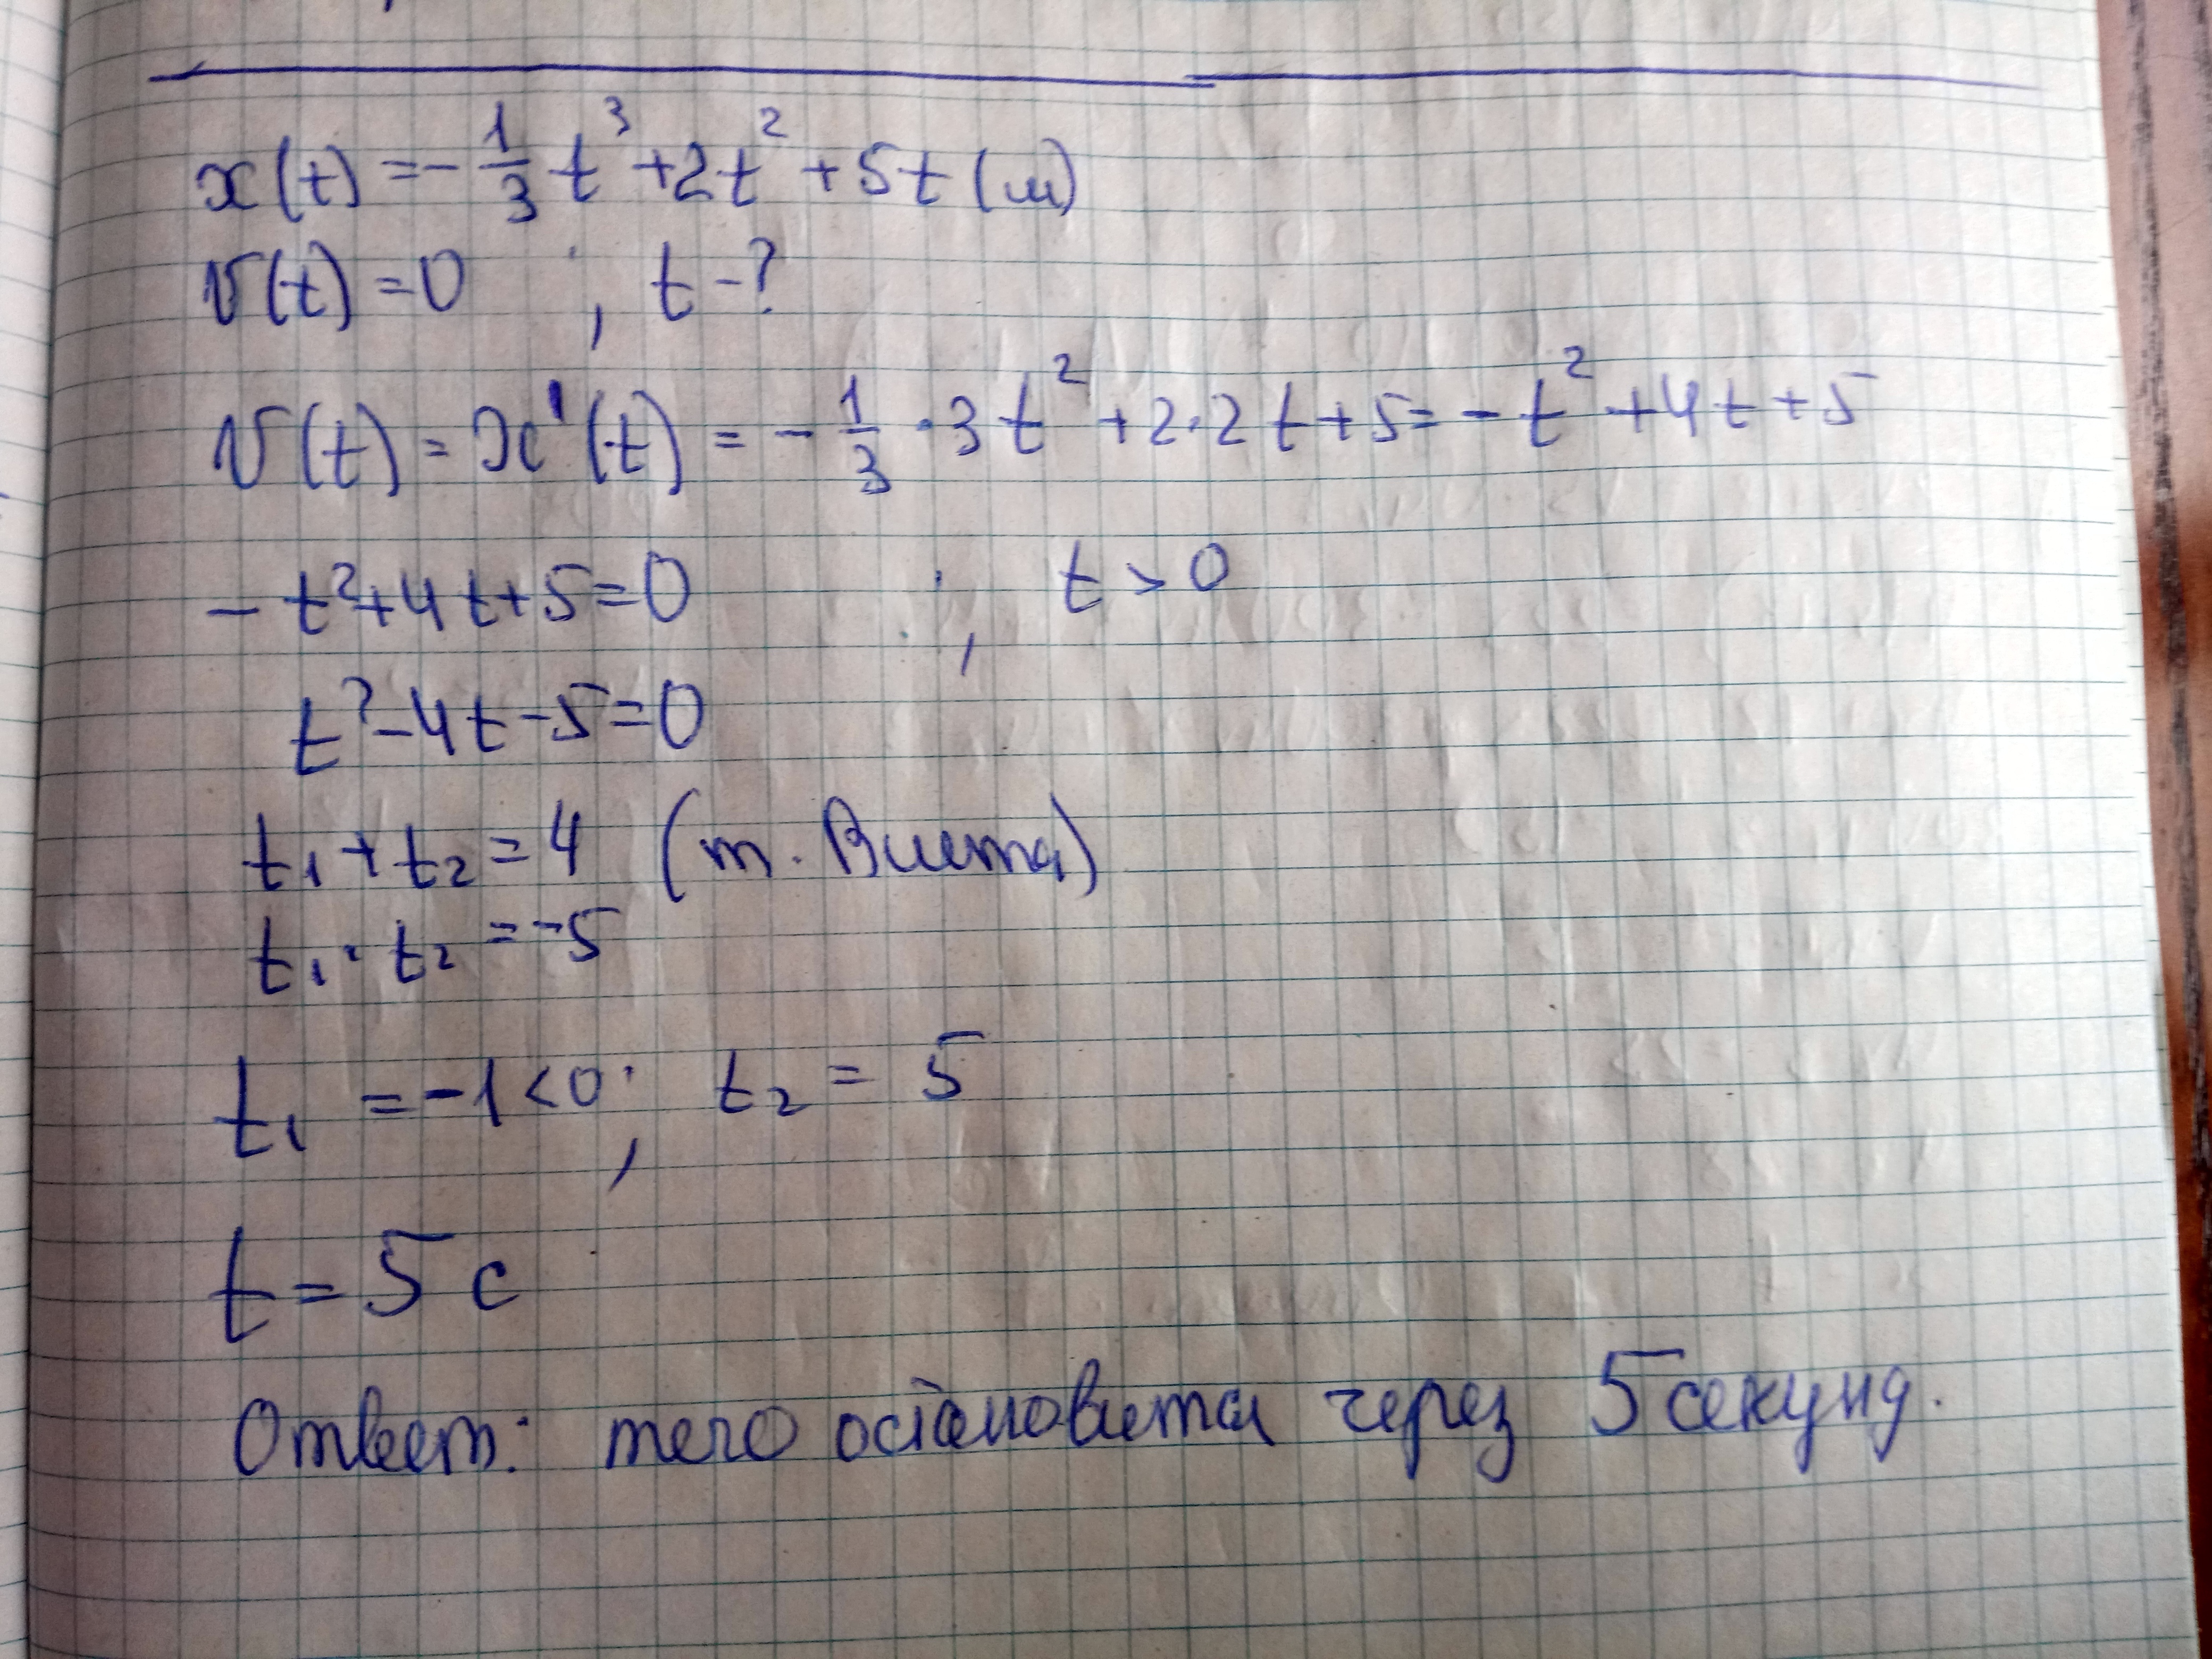 x(t) = - 1/3 t³ + 2t² + 5t (м)
v(t) = 0 ; t - ?
v(t) = x'(t) = - 1/3 · 3t² + 2·2t + 5 = - t² + 4t + 5
- t² + 4t + 5 = 0 ; t > 0
t² - 4t - 5 = 0
t₁ + t₂ = 4 (т. Виета)
t₁ · t₂ = -5
t₁ = -1 < 0 ; t₂ = 5
t = 5 с
Ответ: тело остановится через 5 секунд.